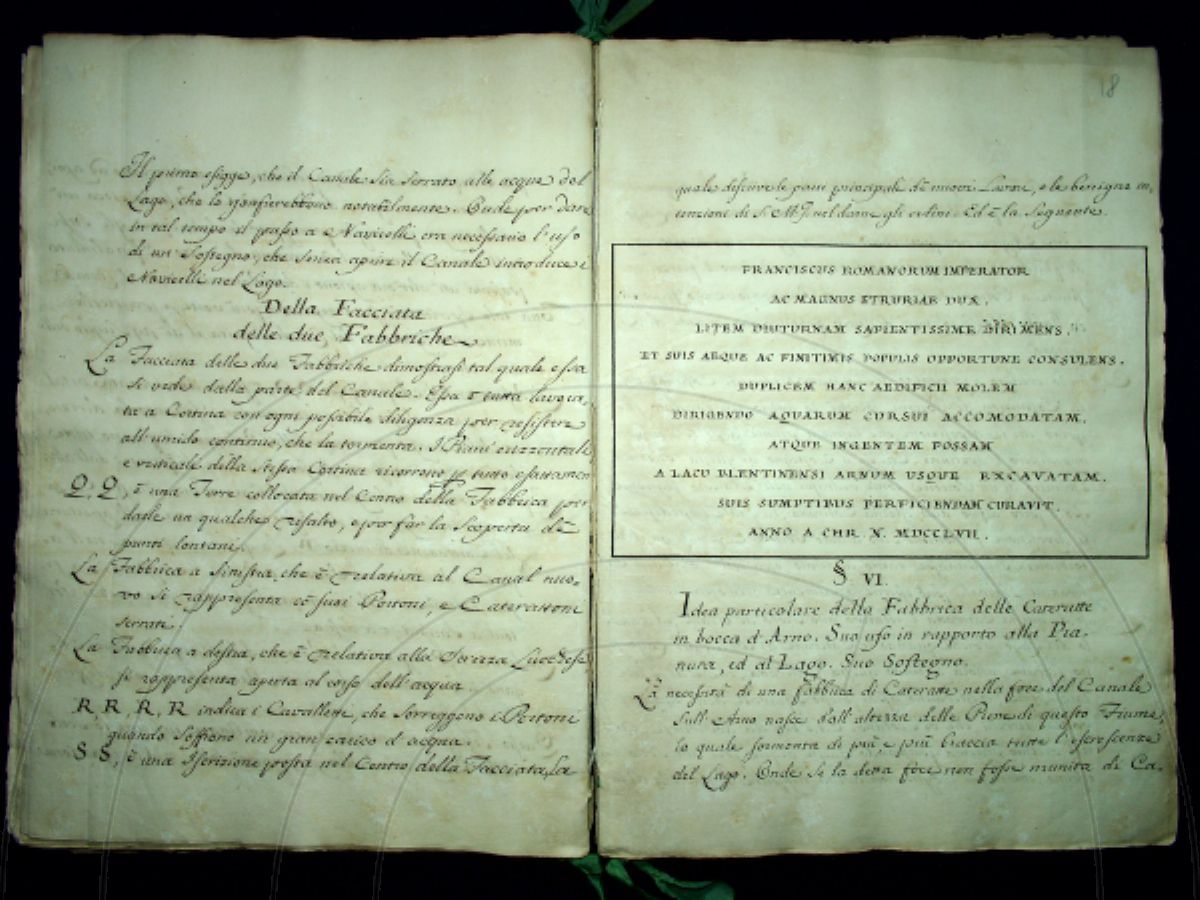 Il primo esigge, che il Canale sia serrato alle acque del
Lago, che lo gonfierebbono notabilmente. Onde per dare
in tal tempo il passo a Navicelli era necessario l'uso
di un Sostegno, che senza aprire il Canale introduce i
Navicelli nel Lago.
Della Facciata
delle due Fabbriche
La Facciata delle due Fabbriche dimostrasi tal quale essa
si vede dalla parte del Canale. Essa è tutta lavora-
ta a Cortina con ogni possibile diligenza per resistere
all'umido continuo, che la tormenta. I Piani orizzontali
e verticale della stessa Cortina ricorrono tutto esattamen
Q, Q, è una Torre collocata nel Centro della Fabbrica per
darle un qualche risalto, e per far la scoperta de
punti lontani.
La Fabbrica a sinistra, che è relativa al Canal nuo-
vo si rappresenta co suoi Portoni, e Caterattoni
serrati.
La Fabbrica a destra, che è relativa alla Serezza Lucchese
si rappresenta aperta al corso dell'acqua.
R, R, R, R indica i Cavalletti, che sorreggono i Portoni
quando soffrono un gran carico d'acqua.
S S, è una Iscrizione posta nel Centro della Facciata, la
18
quale descrive le parti principali de nuovi Lavori, e la benigna in-
tenzione di S. M. I. nel darne gli ordini. Ed è la seguente.
FRANCISCUS ROMANORUM IMPERATOR
AC MAGNUS ETRURIAE DUX.
LITEM DIUTURNAM SAPIENTISSIME DIRIMENS.
ET SUIS AEQUE AC FINITIMIS POPULIS OPPORTUNE CONSULENS.
DUPLICEM HANC AEDIFICII MOLEM
DIRIGENDO AQUARUM CURSUI ACCOMODATAM.
ATQUE INGENTEM FOSSAM
A LACU BLENTINENSI ARNUM USQUE EXCAVATAM.
SUIS SUMPTIBUS PERFICIENDAM CURAVIT.
ANNO A CHR. N. MDCCLVII.
§ VI.
Idea particolare della Fabbrica delle Cateratte
in bocca d'Arno. Suo uso in rapporto alla Pia-
nura, ed al Lago. Suo Sostegno.
La necessità di una fabbrica di Cateratte nella foce del Canale
sull'Arno nasce dall'altezza delle Piene di questo Fiume,
lo quale sormonta di più, e più braccia tutte l'escrescenze
del Lago. Onde se la detta foce non fosse munita di Ca-